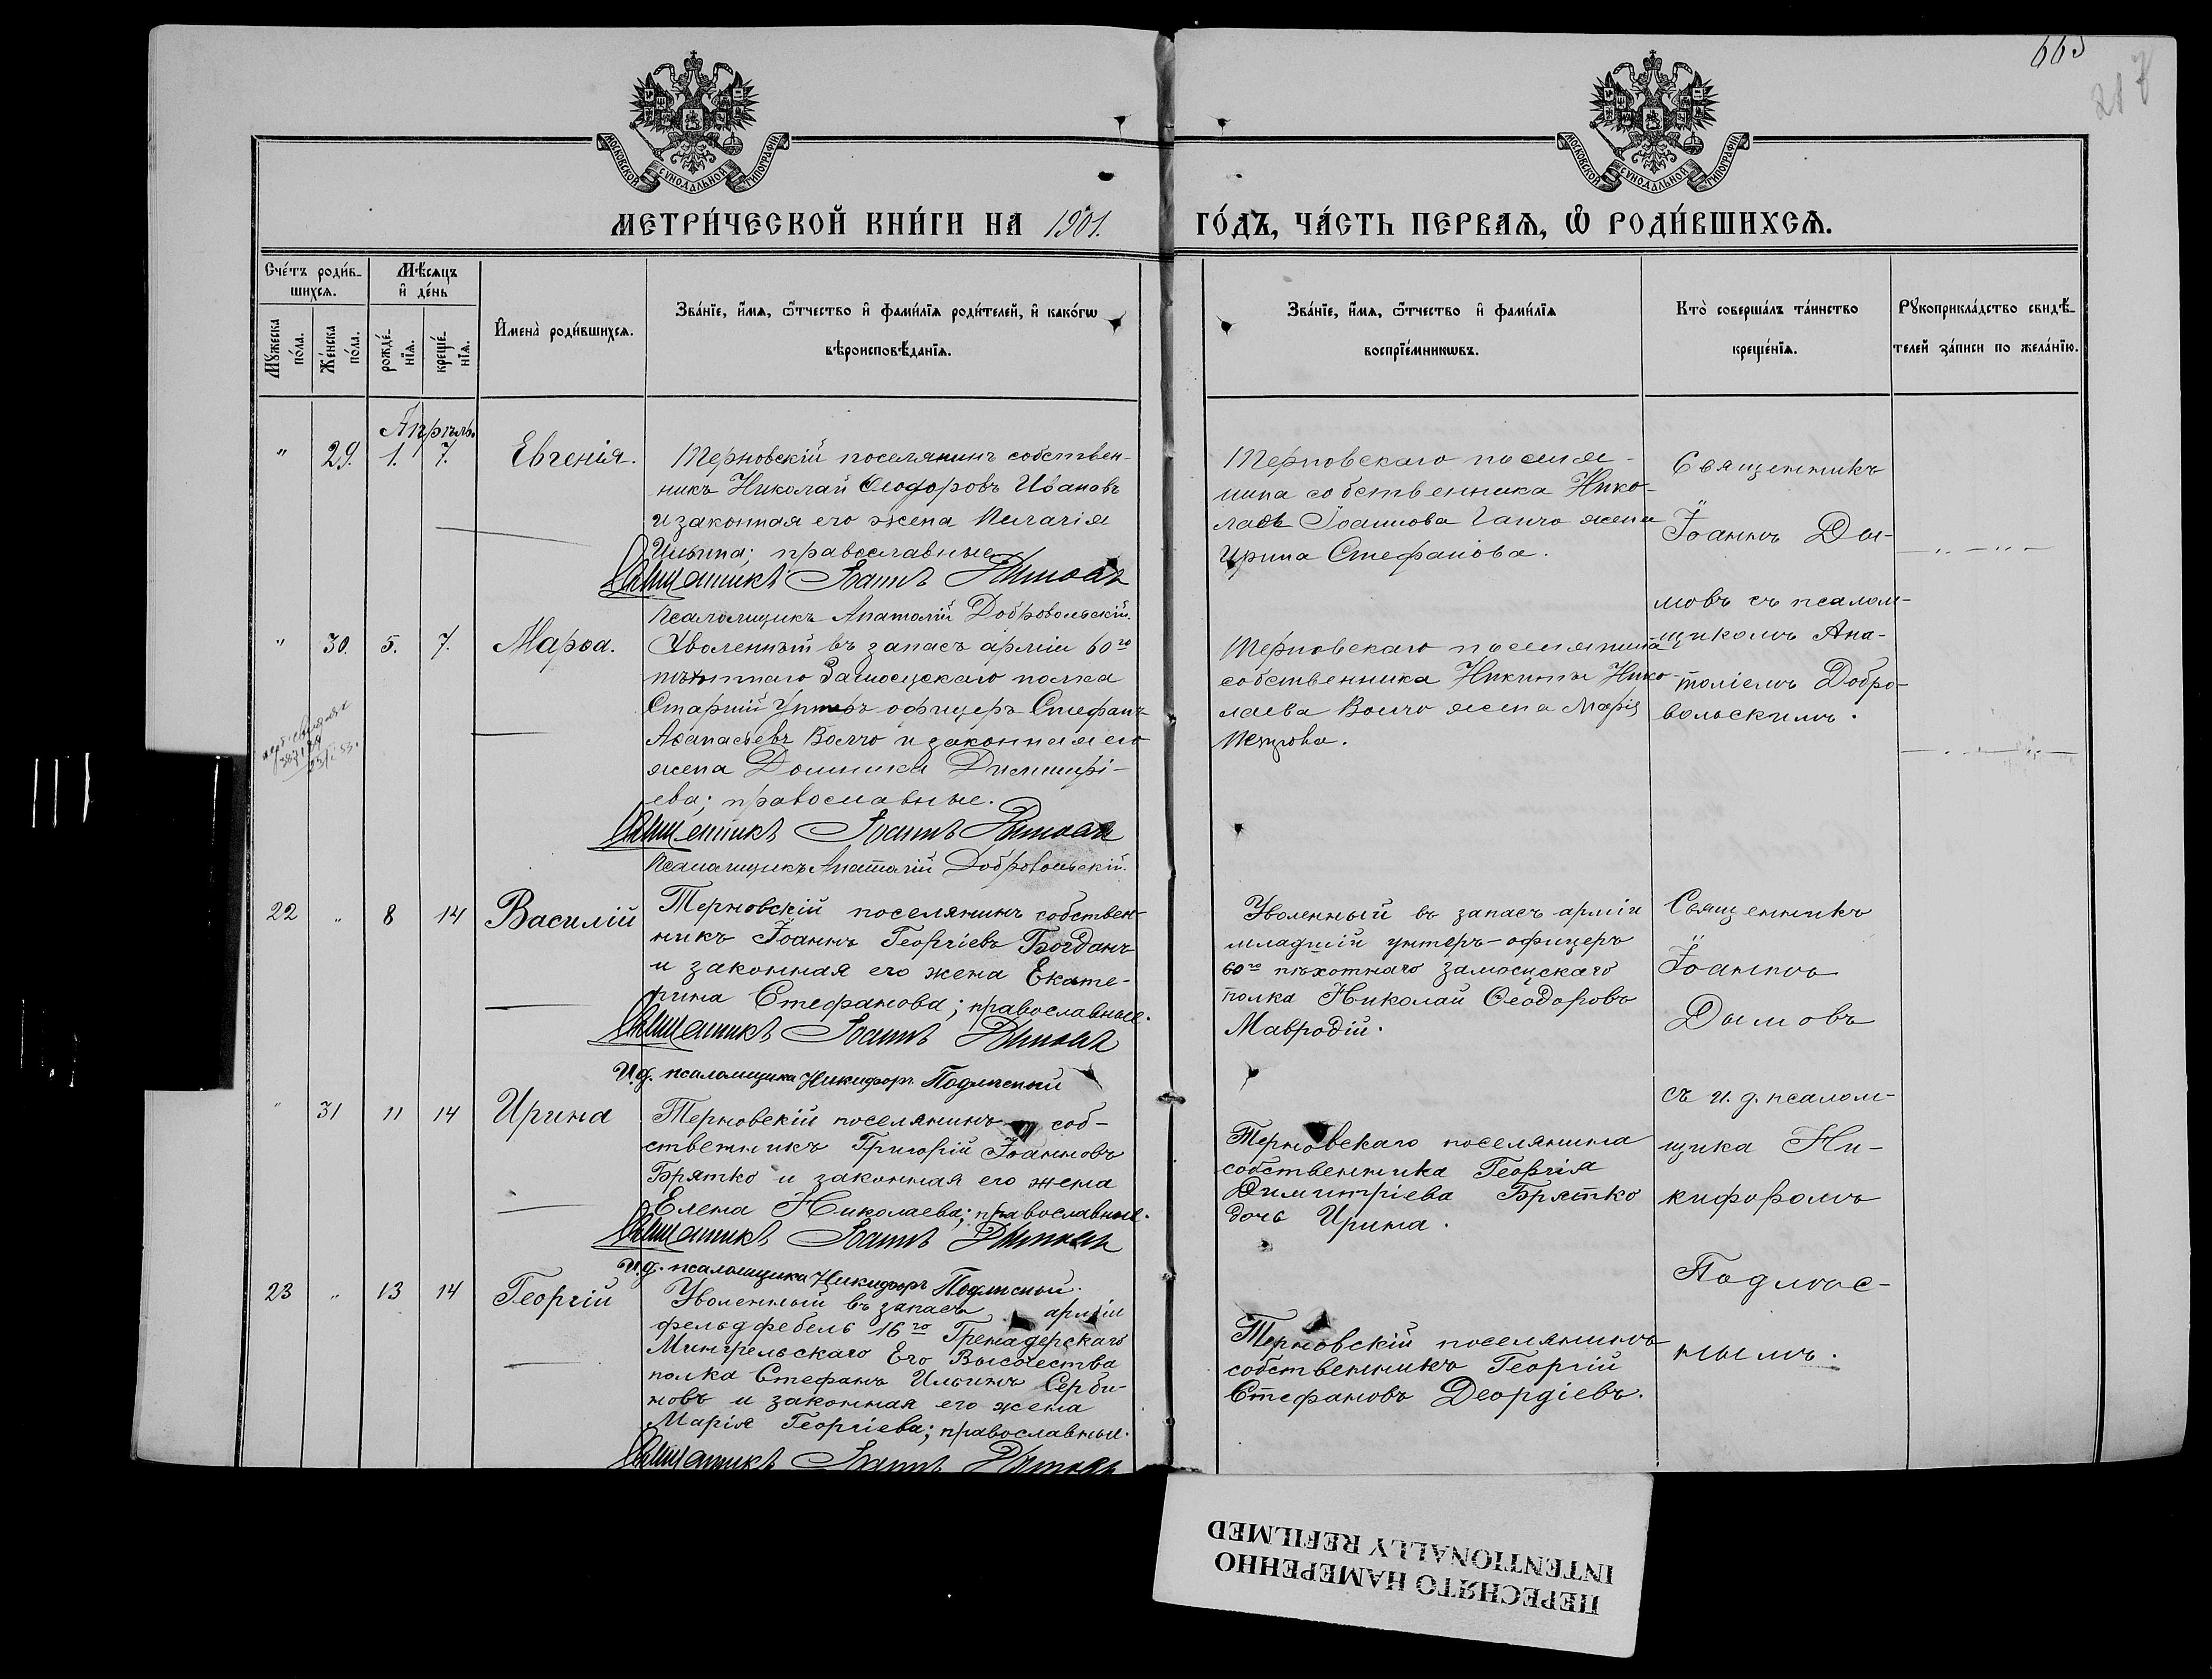 665
217
МОСКОВСКОЙ СУНОДАЛЬНОЙ ТИПОГРАФІИ
МОСКОВСКОЙ СУНОДАЛЬНОЙ ТИПОГРАФІИ
МЕТРИ́ЧЕСКОЙ КНИ́ГИ НА 1901. ГО́ДЪ, ЧА́СТЬ ПЕРВАѦ, Ѽ РОДИ́ВШИХСѦ.
Сче́тъ роди́в-
шихсѧ.
Мꙋ́жеска по́ла.
Же́нска по́ла.
Мѣ́сѧцъ
и҆ де́нь
рожде́-нїѧ.
креще́-нїѧ.
И҆мена̀ роди́вшихсѧ.
Зва́нїе, и҆́мѧ, ѻ҆́тчество и҆ фами́лїѧ роди́телей, и҆ како́гѡ
вѣроисповѣ́данїѧ.
Зва́нїе, и҆́мѧ, ѻ҆́тчество и҆ фами́лїѧ
воспрїе́мникѡвъ.
Кто̀ соверша́лъ та́инство
креще́нїѧ.
Рꙋкоприкла́дство свидѣ́-
телей за́писи по жела́нїю.
Апрѣль.
" 29. 1. 7. Евгенія.
Терновскій поселянинъ собствен-
никъ Николай Ѳеодоровъ Ивановъ
и законная его жена Пелагія
Ильина; православные
Священникъ Іоаннъ Дымовъ
Псаломщикъ Анатолій Добровольскій.
Терновскаго поселя-
нина собственника Нико-
лая Іоаннова Ганчо жена
Ирина Стефанова.
Священникъ
Іоаннъ Ды-
мовъ съ псалом-
щикомъ Ана-
толіемъ Добро-
вольскимъ.
" 30. 5. 7. Марѳа.
Уволенный въ запасъ арміи 60го
пѣхотнаго Замосцскаго полка
Старшій Унтеръ офицеръ Стефанъ
Аѳанасьевъ Волчо и законная его
жена Домника Димитрі-
ева; православные.
Священникъ Іоаннъ Дымовъ
Псаломщикъ Анатолій Добровольскій.
Терновскаго поселянина
собственника Никиты Нико-
лаева Волчо жена Марія
Петрова.
22 " 8 14 Василій
Терновскій поселянинъ собствен-
никъ Іоаннъ Георгіевъ Богданъ
и законная его жена Екате-
рина Стефанова; православные.
Священникъ Іоаннъ Дымовъ
И.д. псаломщика Никифоръ Подлѣсный
Уволенный въ запасъ арміи
младшій унтеръ-офицеръ
60го пѣхотнаго Замосцскаго
полка Николай Ѳеодоровъ
Мавродій.
Священникъ
Іоаннъ
Дымовъ
съ и.д. псалом-
щика Ни-
кифоромъ
Подлѣс-
нымъ.
" 31 11 14 Ирина
Терновскій поселянинъ соб-
ственникъ Григорій Іоанновъ
Брятко и законная его жена
Елена Николаева; православные.
Священникъ Іоаннъ Дымовъ
И.д. псаломщика Никифоръ Подлѣсный.
Терновскаго поселянина
собственника Георгія
Димитріева Брятко
дочь Ирина.
23 " 13 14 Георгій
Уволенный въ запасъ арміи
фельдфебель 16го Гренадерскаго
Мингрельскаго Его Высочества
полка Стефанъ Ильинъ Серби-
новъ и законная его жена
Марія Георгіева; православные.
Священникъ Іоаннъ Дымовъ
Терновскій поселянинъ
собственникъ Георгій
Стефановъ Деордіевъ.
ПЕРЕСНЯТО НАМЕРЕННО
INTENTIONALLY REFILMED